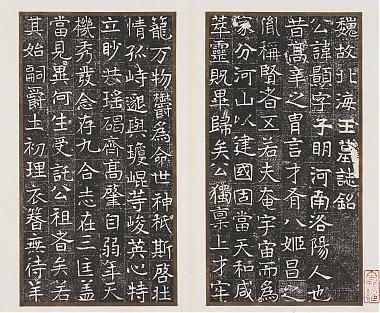 魏故北海王墓誌銘
公諱顥字子明河南洛陽人也
昔華之胄言才八姬昌之
胤稱賢者五若夫奄宇宙而為
家分河山以建國固當天和咸
萃靈貺畢歸矣公獨稟上才牢
籠万物鬱為命世神秖斯啓壯
情孤峙邈與瓊崐等峻英心特
立眇然瑤碣齊高肇自弱年天
機秀發念存九合志在三匡盖
當見異何生受託公祖者矣若
其始嗣爵土初理衣簪無待羊